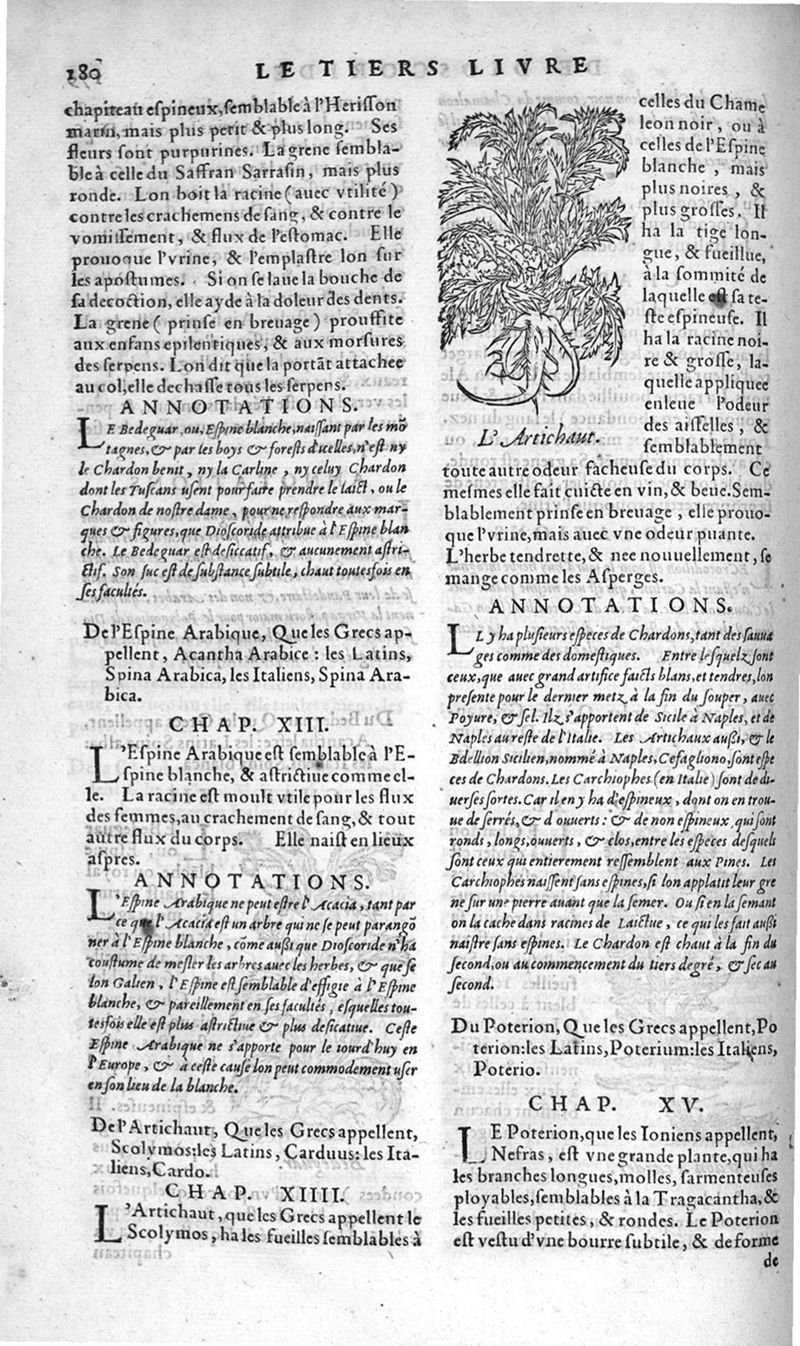 180
LE TIERS LIVRE
chapiteau eſpineux, ſemblable à l'Heriſſon
marin, mais plus petit & plus long. Ses
fleurs ſont purpurines. La grene ſembla-
ble à celle du Saffran Sarraſin, mais plus
ronde. Lon boit la racine (auec vtilité)
contre les crachemens de ſang, & contre le
vomiſſement, & flux de l'eſtomac. Elle
prouoque l'vrine, & l'emplaſtre lon ſur
les apoſtumes. Si on ſe laue la bouche de
ſa decoction, elle ayde à la doleur des dents.
La grene (prinſe en breuage) prouffite
aux enfans epilentiques, & aux morſures
des ſerpens. Lon dit que la portãt attachee
au col, elle dechaſſe tous les ſerpens.
ANNOTATIONS.
LE Bedeguar, ou, Eſpine blanche, naiſſant par les mõ
tagnes, & par les boys & foreſts d'icelles, n'eſt ny
le Chardon benit, ny la Carline, ny celuy Chardon
dont les Tuſcans uſent pour faire prendre le laict, ou le
Chardon de noſtre dame, pour ne reſpondre aux mar-
ques & figures, que Dioſcoride attribue à l'Eſpine blan
che. Le Bedeguar eſt deſiccatif, & aucunement aſtri-
ctif. Son ſuc eſt de ſubſtance ſubtile, chaut toutesfois en
ſes facultés.
De l'Eſpine Arabique, Que les Grecs ap-
pellent, Acantha Arabice : les Latins,
Spina Arabica, les Italiens, Spina Ara-
bica.
CHAP. XIII.
L'Eſpine Arabique eſt ſemblable à l'E-
ſpine blanche, & aſtrictiue comme el-
le. La racine eſt moult vtile pour les flux
des femmes, au crachement de ſang, & tout
autre flux du corps. Elle naiſt en lieux
aſpres.
ANNOTATIONS.
L'Eſpine Arabique ne peut eſtre l'Acacia, tant par
ce que l'Acacia eſt un arbre qui ne ſe peut parangõ
ner à l'Eſpine blanche, cõme auſsi que Dioſcoride n'ha
couſtume de meſler les arbres auec les herbes, & que ſe
lon Galien, l'Eſpine eſt ſemblable d'effigie à l'Eſpine
blanche, & pareillement en ſes facultés, eſquelles tou-
tesfois elle eſt plus aſtrictiue & plus deſicatiue. Ceſte
Eſpine Arabique ne s'apporte pour le iourd'huy en
l'Europe, & à ceſte cauſe lon peut commodement uſer
en ſon lieu de la blanche.
De l'Artichaut, Que les Grecs appellent,
Scolymos: les Latins, Carduus: les Ita-
liens, Cardo.
CHAP. XIIII.
L'Artichaut, que les Grecs appellent le
Scolymos, ha les fueilles ſemblables à
celles du Chame
leon noir, ou à
celles de l'Eſpine
blanche, mais
plus noires, &
plus groſſes. Il
ha la tige lon-
gue, & fueillue,
à la ſommité de
laquelle eſt ſa te-
ſte eſpineuſe. Il
ha la racine noi-
re & groſſe, la-
quelle appliquee
enleue l'odeur
des aiſſelles, &
ſemblablement
L'Artichaut.
toute autre odeur facheuſe du corps. Ce
meſmes elle fait cuicte en vin, & beue. Sem-
blablement prinſe en breuage, elle prouo-
que l'vrine, mais auec vne odeur puante.
L'herbe tendrette, & nee nouuellement, ſe
mange comme les Aſperges.
ANNOTATIONS.
IL y ha pluſieurs eſpeces de Chardons, tant des ſauua
ges comme des domeſtiques. Entre leſquelz ſont
ceux, que auec grand artifice faicts blans, et tendres, lon
preſente pour le dernier metz à la fin du ſouper, auec
Poyure, & ſel. Ilz s'apportent de Sicile à Naples, et de
Naples au reſte de l'Italie. Les Artichaux auſsi, & le
Bdellion Sicilien, nommé à Naples, Cefagliono, ſont eſpe
ces de Chardons. Les Carchiophes (en Italie) ſont de di-
uerſes ſortes. Car il en y ha d'eſpineux, dont on en trou-
ue de ſerrés, & d'ouuerts : & de non eſpineux qui ſont
ronds, longs, ouuerts, & clos, entre les eſpeces deſquels
ſont ceux qui entierement reſſemblent aux Pines. Les
Carchiophes naiſſent ſans eſpines, ſi lon applatit leur gre
ne ſur une pierre auant que la ſemer. Ou ſi en la ſemant
on la cache dans racines de Laictue, ce qui les fait auſsi
naiſtre ſans eſpines. Le Chardon eſt chaut à la fin du
ſecond, ou au commencement du tiers degré, & ſec au
ſecond.
Du Poterion, Que les Grecs appellent, Po
terion: les Latins, Poterium: les Italiens,
Poterio.
CHAP. XV.
LE Poterion, que les Ioniens appellent,
Nefras, eſt vne grande plante, qui ha
les branches longues, molles, ſarmenteuſes
ployables, ſemblables à la Tragacantha, &
les fueilles petites, & rondes. Le Poterion
eſt veſtu d'vne bourre ſubtile, & de forme
de